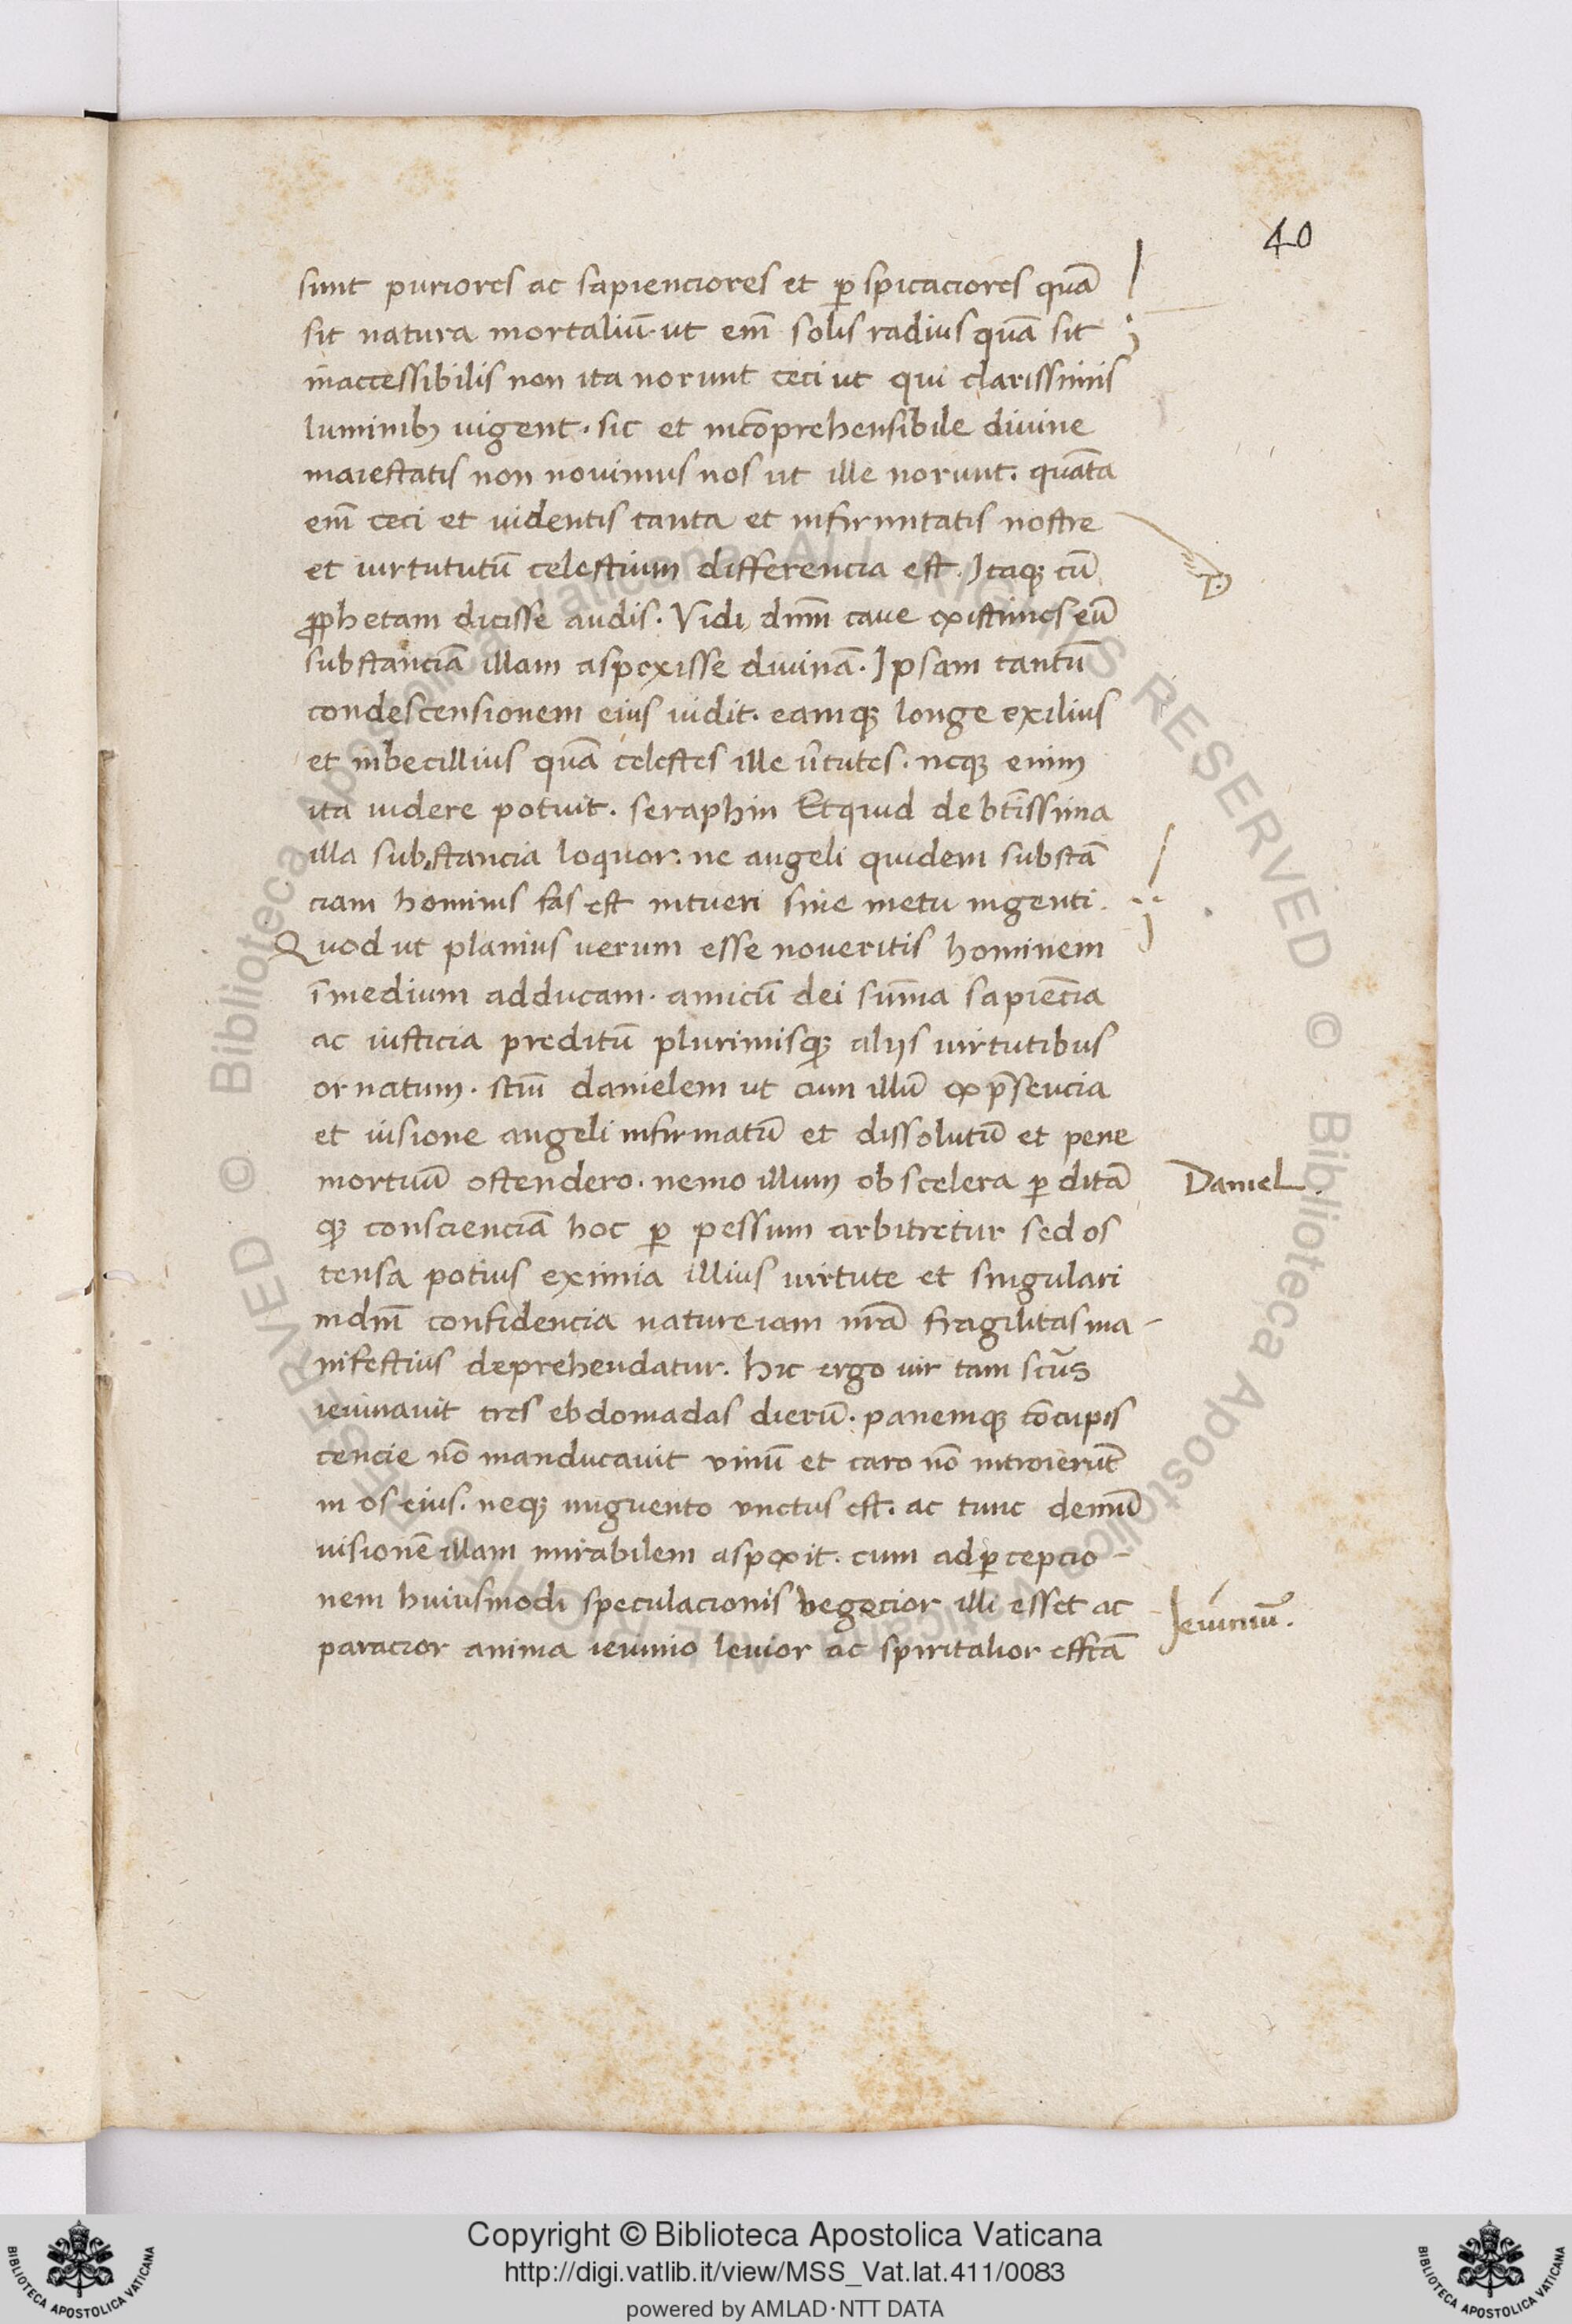 40
sunt puriores ac sapienciores et p̱spicaciores quā
sit natura mortaliū· ut em̄ solis radius quā sit
inaccessibilis non ita norunt ceci ut qui clarissimis
luminibꝫ vigent· sic et incōprehensibile divine
maiestatis non novimus nos ut ille norunt· quāta
em̄ ceci et videntis tanta et infirmitatis nostre
et virtututū celestium differencia est. Itaqꝫ cū
ꝓphetam dicisse audis· Vidi dnm̄ cave existimes eū
substanciā illam aspexisse divinā· Ipsam tantū
condescensionem eius vidit· eamqꝫ longe exilius
et inbecillius quā celestes ille v̄tutes· neqꝫ enim
ita videre potuit· seraphin Etquid de bt̄issima
illa substancia loquor· ne angeli quidem substā
ciam hominis fas est intueri sine metu ingenti·
Quod ut planius verum esse noveritis hominem
ī medium adducam· amicū dei sūma sapiēcia
ac iusticia preditū plurimisqꝫ aliis virtutibus
ornatum· scm̄ danielem ut cum illū ex p̄sencia
et visione angeli infirmatū et dissolutū et pene
mortuū ostendero· nemo illum ob scelera p̱ditā
qꝫ conscienciā hoc p̱pessum arbitretur sed os
tensa potius eximia illius virtute et singulari
in dm̄ confidencia nature iam nr̄ā fragilitas ma-
nifestius deprehendatur· hic ergo vir tam scūs
ieiunavit tres ebdomadas dierū· panemqꝫ cōcupis
cencie nō manducavit vinū et caro nō introierūt
in os eius· neqꝫ unguento unctus est· ac tunc demū
visionē illam mirabilem aspexit· cum ad p̱cepcio-
nem huiusmodi speculacionis vegecior illi esset ac
paracior anima ieiunio levior ac spiritalior effctā
Daniel.
Ieiuniū.
© Biblioteca Apostolica Vaticana ALL RIGHTS RESERVED
Copyright © Biblioteca Apostolica Vaticana
http://digi.vatlib.it/view/MSS_Vat.lat.411/0083
powered by AMLAD·NTT DATA
BIBLIOTECA APOSTOLICA VATICANA
BIBLIOTECA APOSTOLICA VATICANA